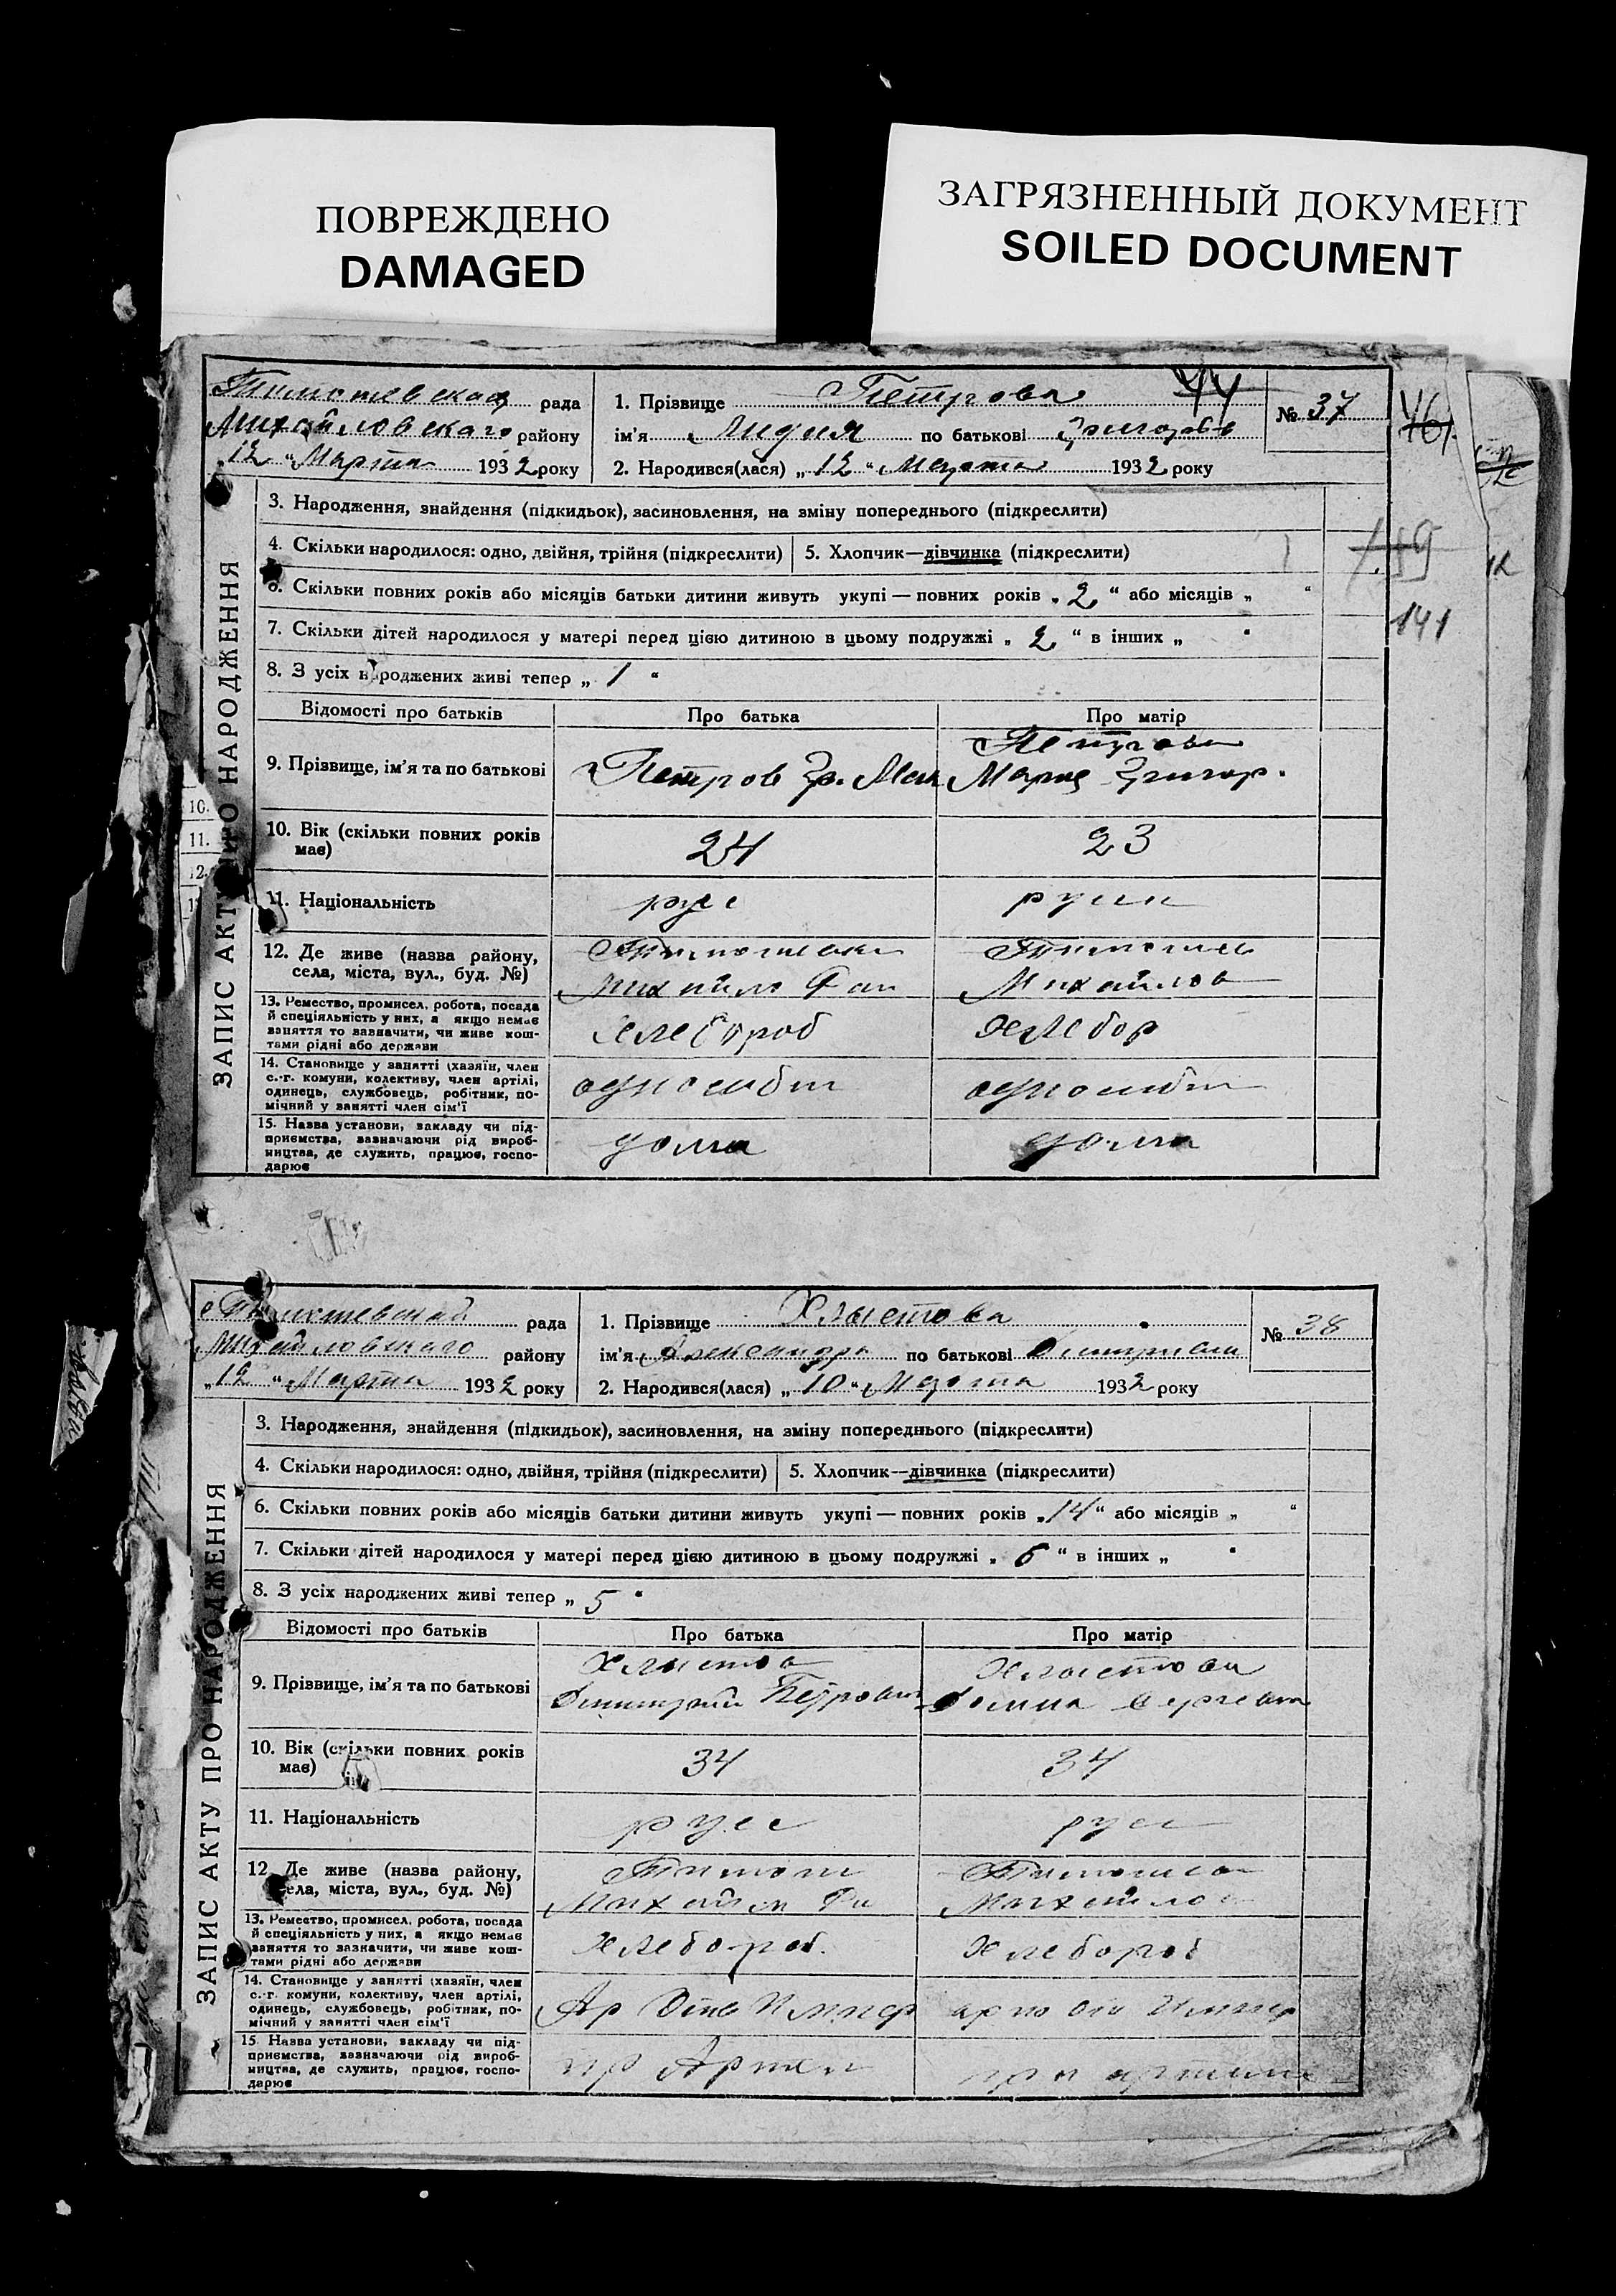 ПОВРЕЖДЕНО
DAMAGED
ЗАГРЯЗНЕННЫЙ ДОКУМЕНТ
SOILED DOCUMENT
рада
Михайловскаго району
„12" Марта 1932 року
1. Прізвище Петрова
44
ім'я Лидия по батькові
2. Народився(лася) „12" Марта 1932 року
№ 37
46
3. Народження, знайдення (підкидьок), засиновлення, на зміну попереднього (підкреслити)
4. Скільки народилося: одно, двійня, трійня (підкреслити)
5. Хлопчик—дівчинка (підкреслити)
6. Скільки повних років або місяців батьки дитини живуть укупі — повних років „2" або місяців „ "
7. Скільки дітей народилося у матері перед цією дитиною в цьому подружжі „2" в інших „ "
141
8. З усіх народжених живі тепер „1"
Відомості про батьків
Про батька
Про матір
9. Прізвище, ім'я та по батькові
Петров Гр.
Петрова
Мария Григор.
10. Вік (скільки повних років
має)
24
23
11. Національність
рус
русск
12. Де живе (назва району,
села, міста, вул., буд. №)
Михайло
Михайлов
13. Ремество, промисел, робота, посада
й спеціяльність у них, а якщо немає
заняття то зазначити, чи живе кош-
тами рідні або держави
хлебороб
хлебор
14. Становище у занятті (хазяїн, член
с.-г. комуни, колективу, член артілі,
одинець, службовець, робітник, по-
мічний у занятті член сім'ї
15. Назва установи, закладу чи під-
приємства, зазначаючи рід вироб-
ництва, де служить, працює, госпо-
дарює
дома
дома
ЗАПИС АКТУ ПРО НАРОДЖЕННЯ
рада
Михайловскаго району
„12" Марта 1932 року
1. Прізвище Хлыстова
ім'я Александра по батькові
2. Народився(лася) „10" Марта 1932 року
№ 38
3. Народження, знайдення (підкидьок), засиновлення, на зміну попереднього (підкреслити)
4. Скільки народилося: одно, двійня, трійня (підкреслити)
5. Хлопчик—дівчинка (підкреслити)
6. Скільки повних років або місяців батьки дитини живуть укупі — повних років „14" або місяців „ "
7. Скільки дітей народилося у матері перед цією дитиною в цьому подружжі „6" в інших „ "
8. З усіх народжених живі тепер „5"
Відомості про батьків
Про батька
Про матір
9. Прізвище, ім'я та по батькові
Хлыстов
Димитрий Петрович
Хлыстова
Домна
10. Вік (скільки повних років
має)
34
34
11. Національність
русс
русс
12. Де живе (назва району,
села, міста, вул., буд. №)
Михайлов
13. Ремество, промисел, робота, посада
й спеціяльність у них, а якщо немає
заняття то зазначити, чи живе кош-
тами рідні або держави
Хлебороб.
Хлебороб
14. Становище у занятті (хазяїн, член
с.-г. комуни, колективу, член артілі,
одинець, службовець, робітник, по-
мічний у занятті член сім'ї
15. Назва установи, закладу чи під-
приємства, зазначаючи рід вироб-
ництва, де служить, працює, госпо-
дарює
ЗАПИС АКТУ ПРО НАРОДЖЕННЯ